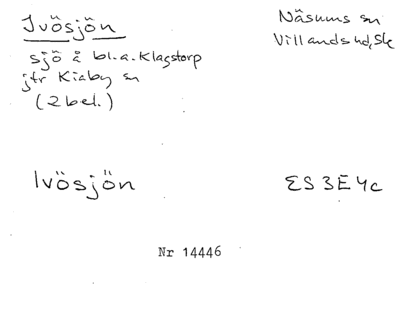 Ivösjön
Näsums sn
Villands hd, Sk
sjö å bl.a. Klagstorp
jfr Kiaby sn
(2 bel.)
Ivösjön
ES 3E4c
Nr 14446